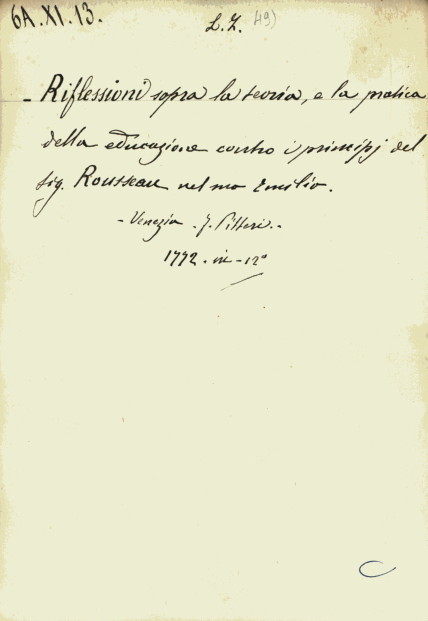 6A.XI.13.
L.Z. 49)
- Riflessioni sopra la teoria, e la pratica
della educazione contro i principj del
sig. Rousseau nel suo Emilio.
- Venezia - F. Pitteri. -
1772. in - 12°